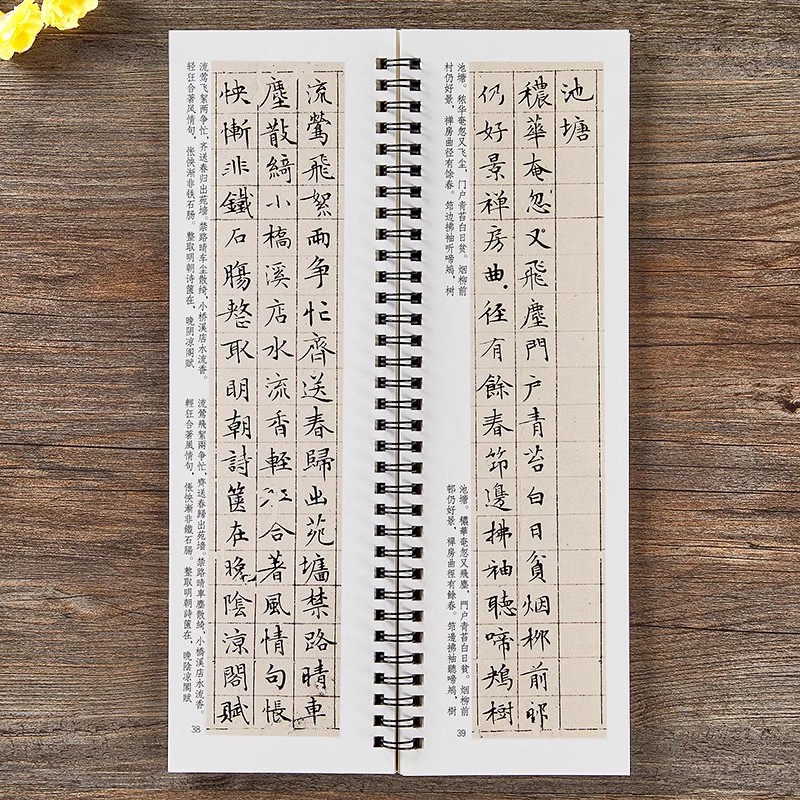 流鶯飛絮兩争忙齊送春歸出苑墻禁路晴車
塵散綺小橋溪店水流香輕狂合著風情句悵
怏慚非鐵石腸整取明朝詩篋在晚陰涼閣賦
流莺飞絮两争忙，齐送春归出苑墙。禁路晴车尘散绮，小桥溪店水流香。
轻狂合著风情句，怅怏渐非铁石肠。整取明朝诗箧在，晚阴凉阁赋
流鶯飛絮兩争忙，齊送春歸出苑墻。禁路晴車塵散綺，小橋溪店水流香。
輕狂合著風情句，悵怏漸非鐵石腸。整取明朝詩篋在，晚陰凉閣賦
38
池塘
穠華奄忽又飛塵門户青苔白日貧烟柳前邨
仍好景禅房曲徑有餘春筇邊拂袖聽啼鴂樹
池塘。秾华奄忽又飞尘，门户青苔白日贫。烟柳前
村仍好景，禅房曲径有馀春。筇边拂袖听啼鴂，树
池塘。穠華奄忽又飛塵，門户青苔白日貧。烟柳前
邨仍好景，禪房曲徑有餘春。筇邊拂袖聽啼鴂，樹
39